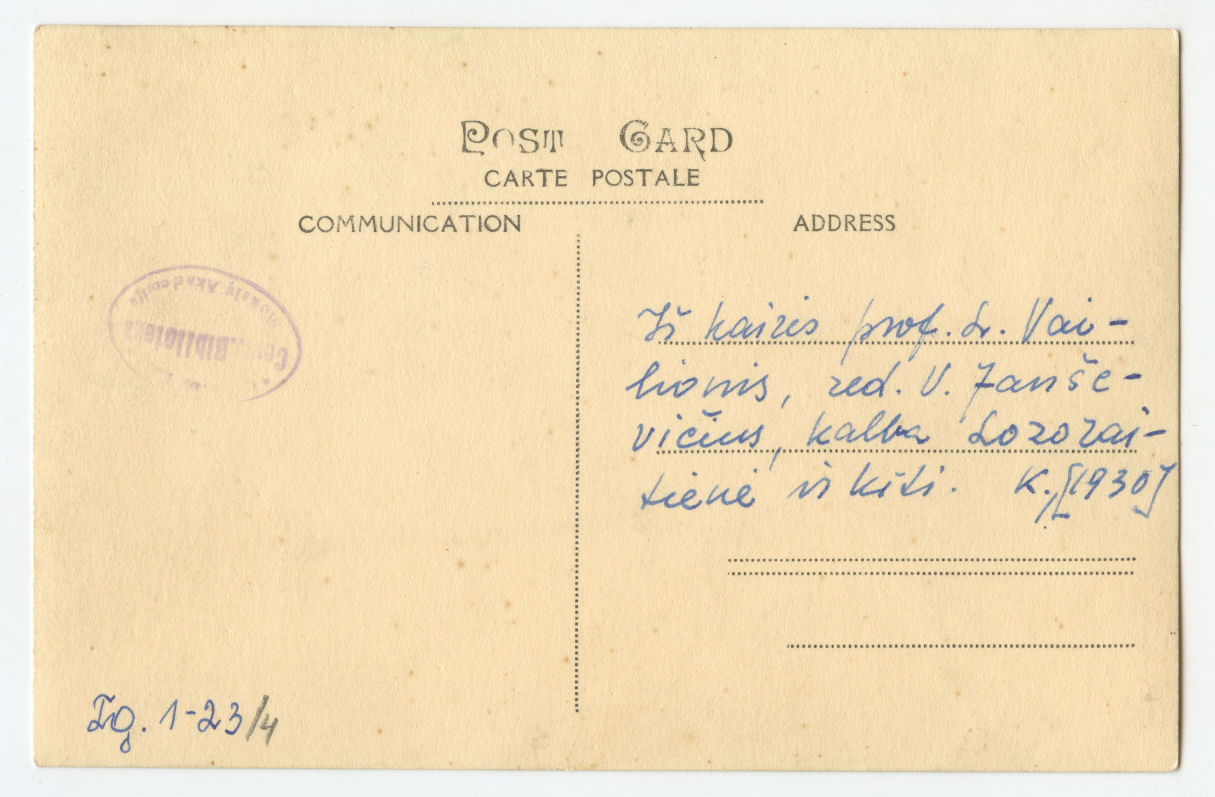 POST CARD
CARTE POSTALE
COMMUNICATION
ADDRESS
Mokslų Akademija
Biblioteka
Iš kairės prof. L. Vai-
lionis, red. V. Janše-
vičius, kalba Lozorai-
tienė ir kiti. K., [1930]
Fg. 1-23/4